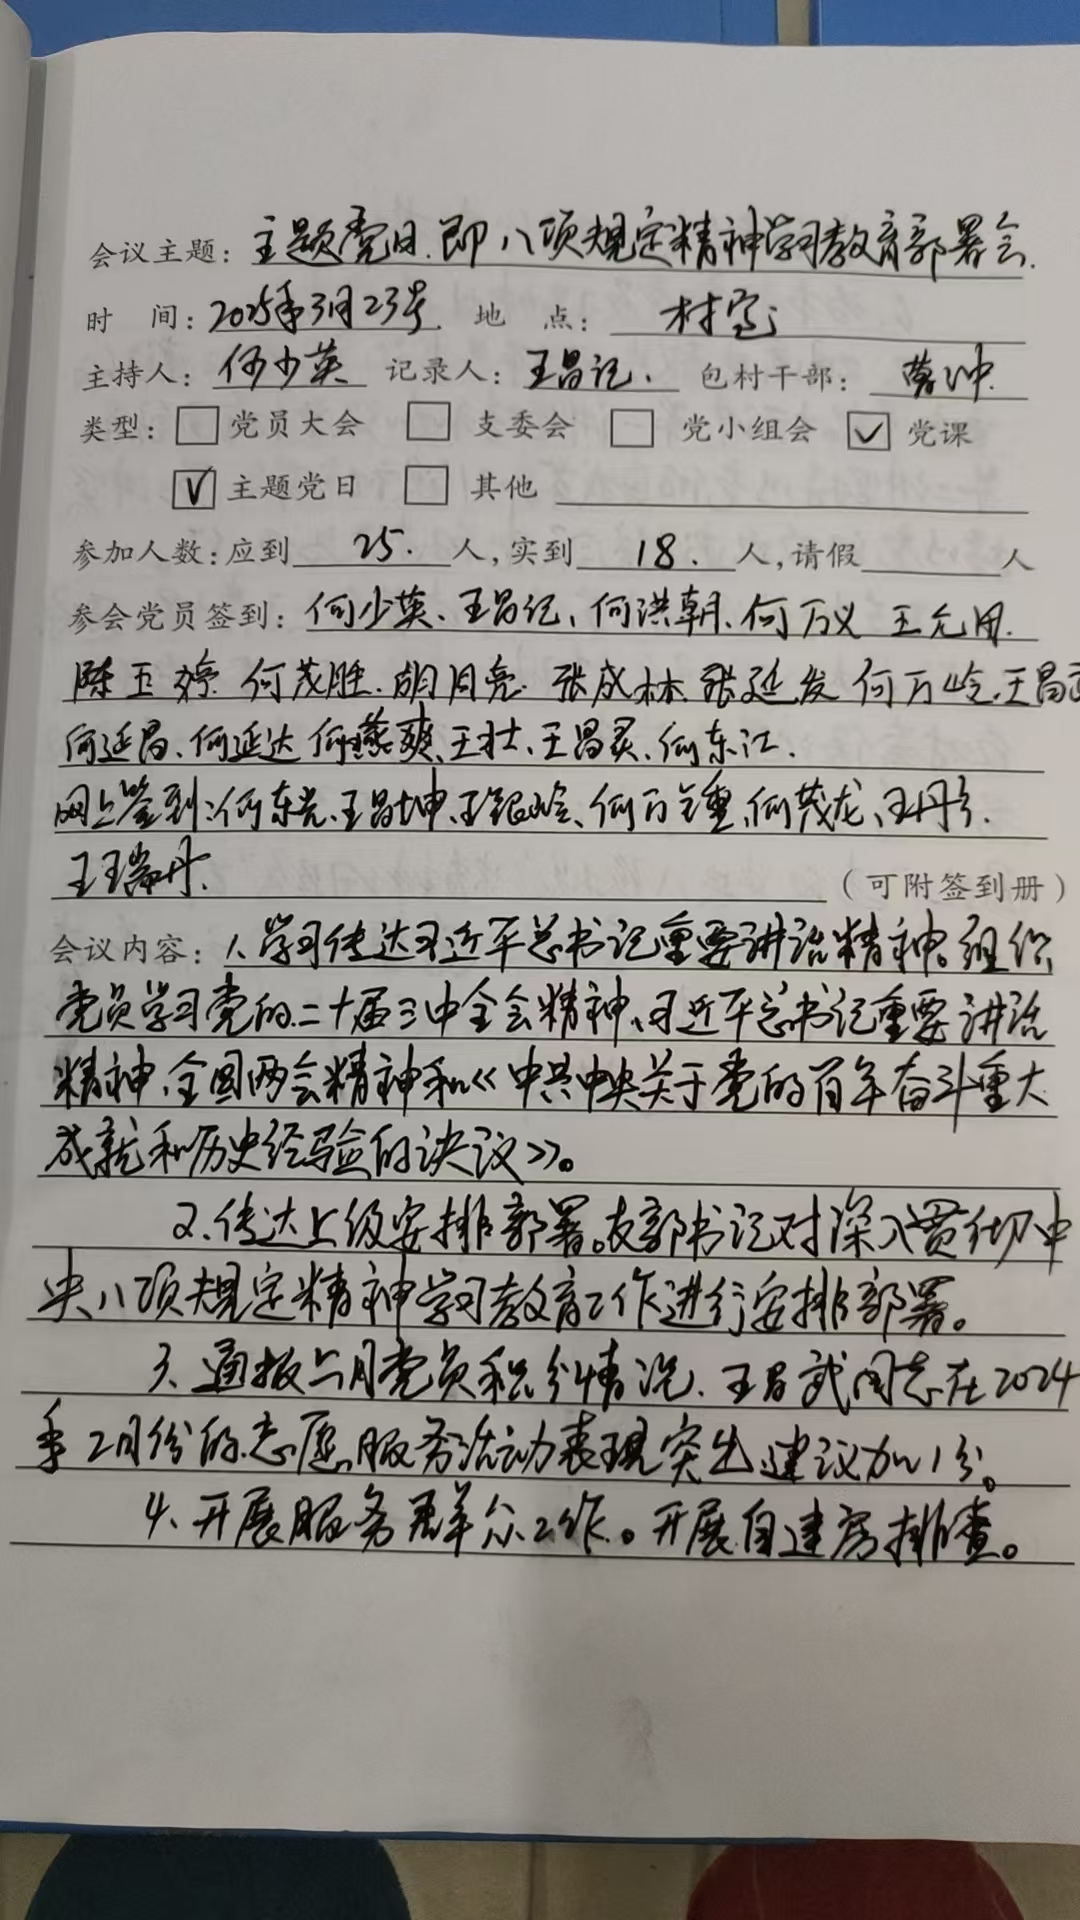 会议主题: 主题党日、即八项规定精神学习教育部署会.
时 间: 2025年3月23号. 地 点: 村室
主持人: 何少英 记录人: 王昌记. 包村干部: 冲
类型: 党员大会 支委会 党小组会 ✓ 党课
✓ 主题党日 其他
参加人数: 应到 25. 人, 实到 18. 人, 请假 人
参会党员签到: 何少英、王昌记、何洪朝、何万义 王允用.
陈玉婷 何茂胜. 胡月亮. 张成林 张延发 何万岭、王昌武
何延昌、何延达 何燕爽、王壮、王昌灵、何东江.
网上签到: 何东光、王昌坤、王银岭、何万钟、何茂龙、王丹
王瑞丹.
(可附签到册)
会议内容: 1、学习传达习近平总书记重要讲话精神。组织
党员学习党的二十届三中全会精神、习近平总书记重要讲话
精神、全国两会精神和《中共中央关于党的百年奋斗重大
成就和历史经验的决议》。
2、传达上级安排部署。支部书记对深入贯彻中
央八项规定精神学习教育工作进行安排部署。
3、通报上月党员积分情况、王昌武同志在2024
年2月份的志愿服务活动表现突出建议加1分。
4、开展服务群众工作。开展自建房排查。